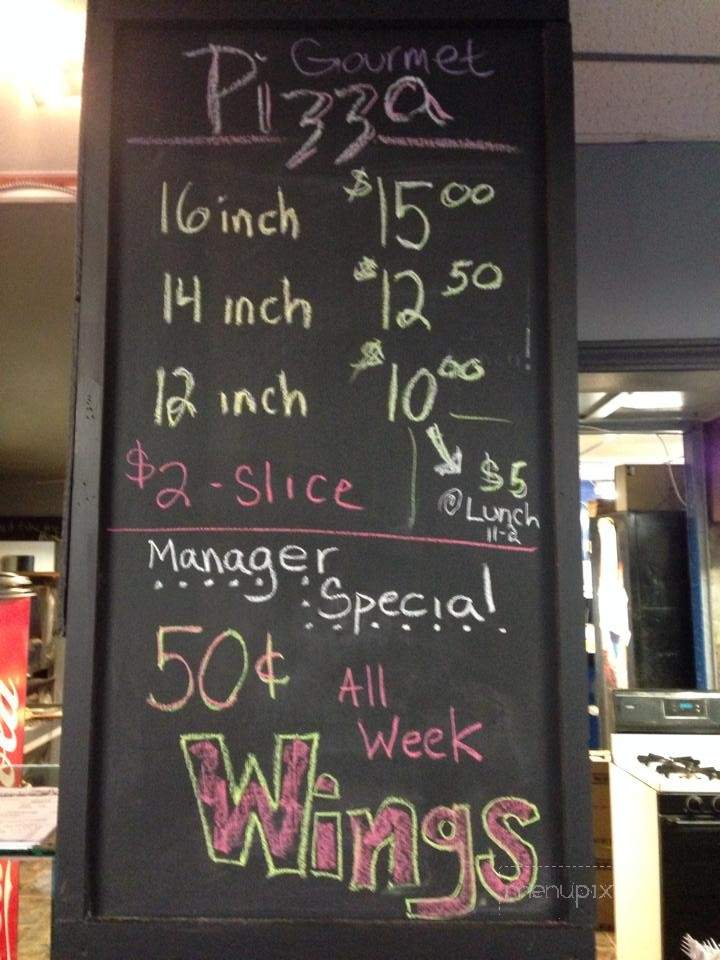 Gourmet
Pizza
16 inch $15.00
14 inch $12.50
12 inch $10.00
$2 - Slice
$5
@ Lunch
11-2
Manager
Special
50¢ All
Week
Wings
menupix